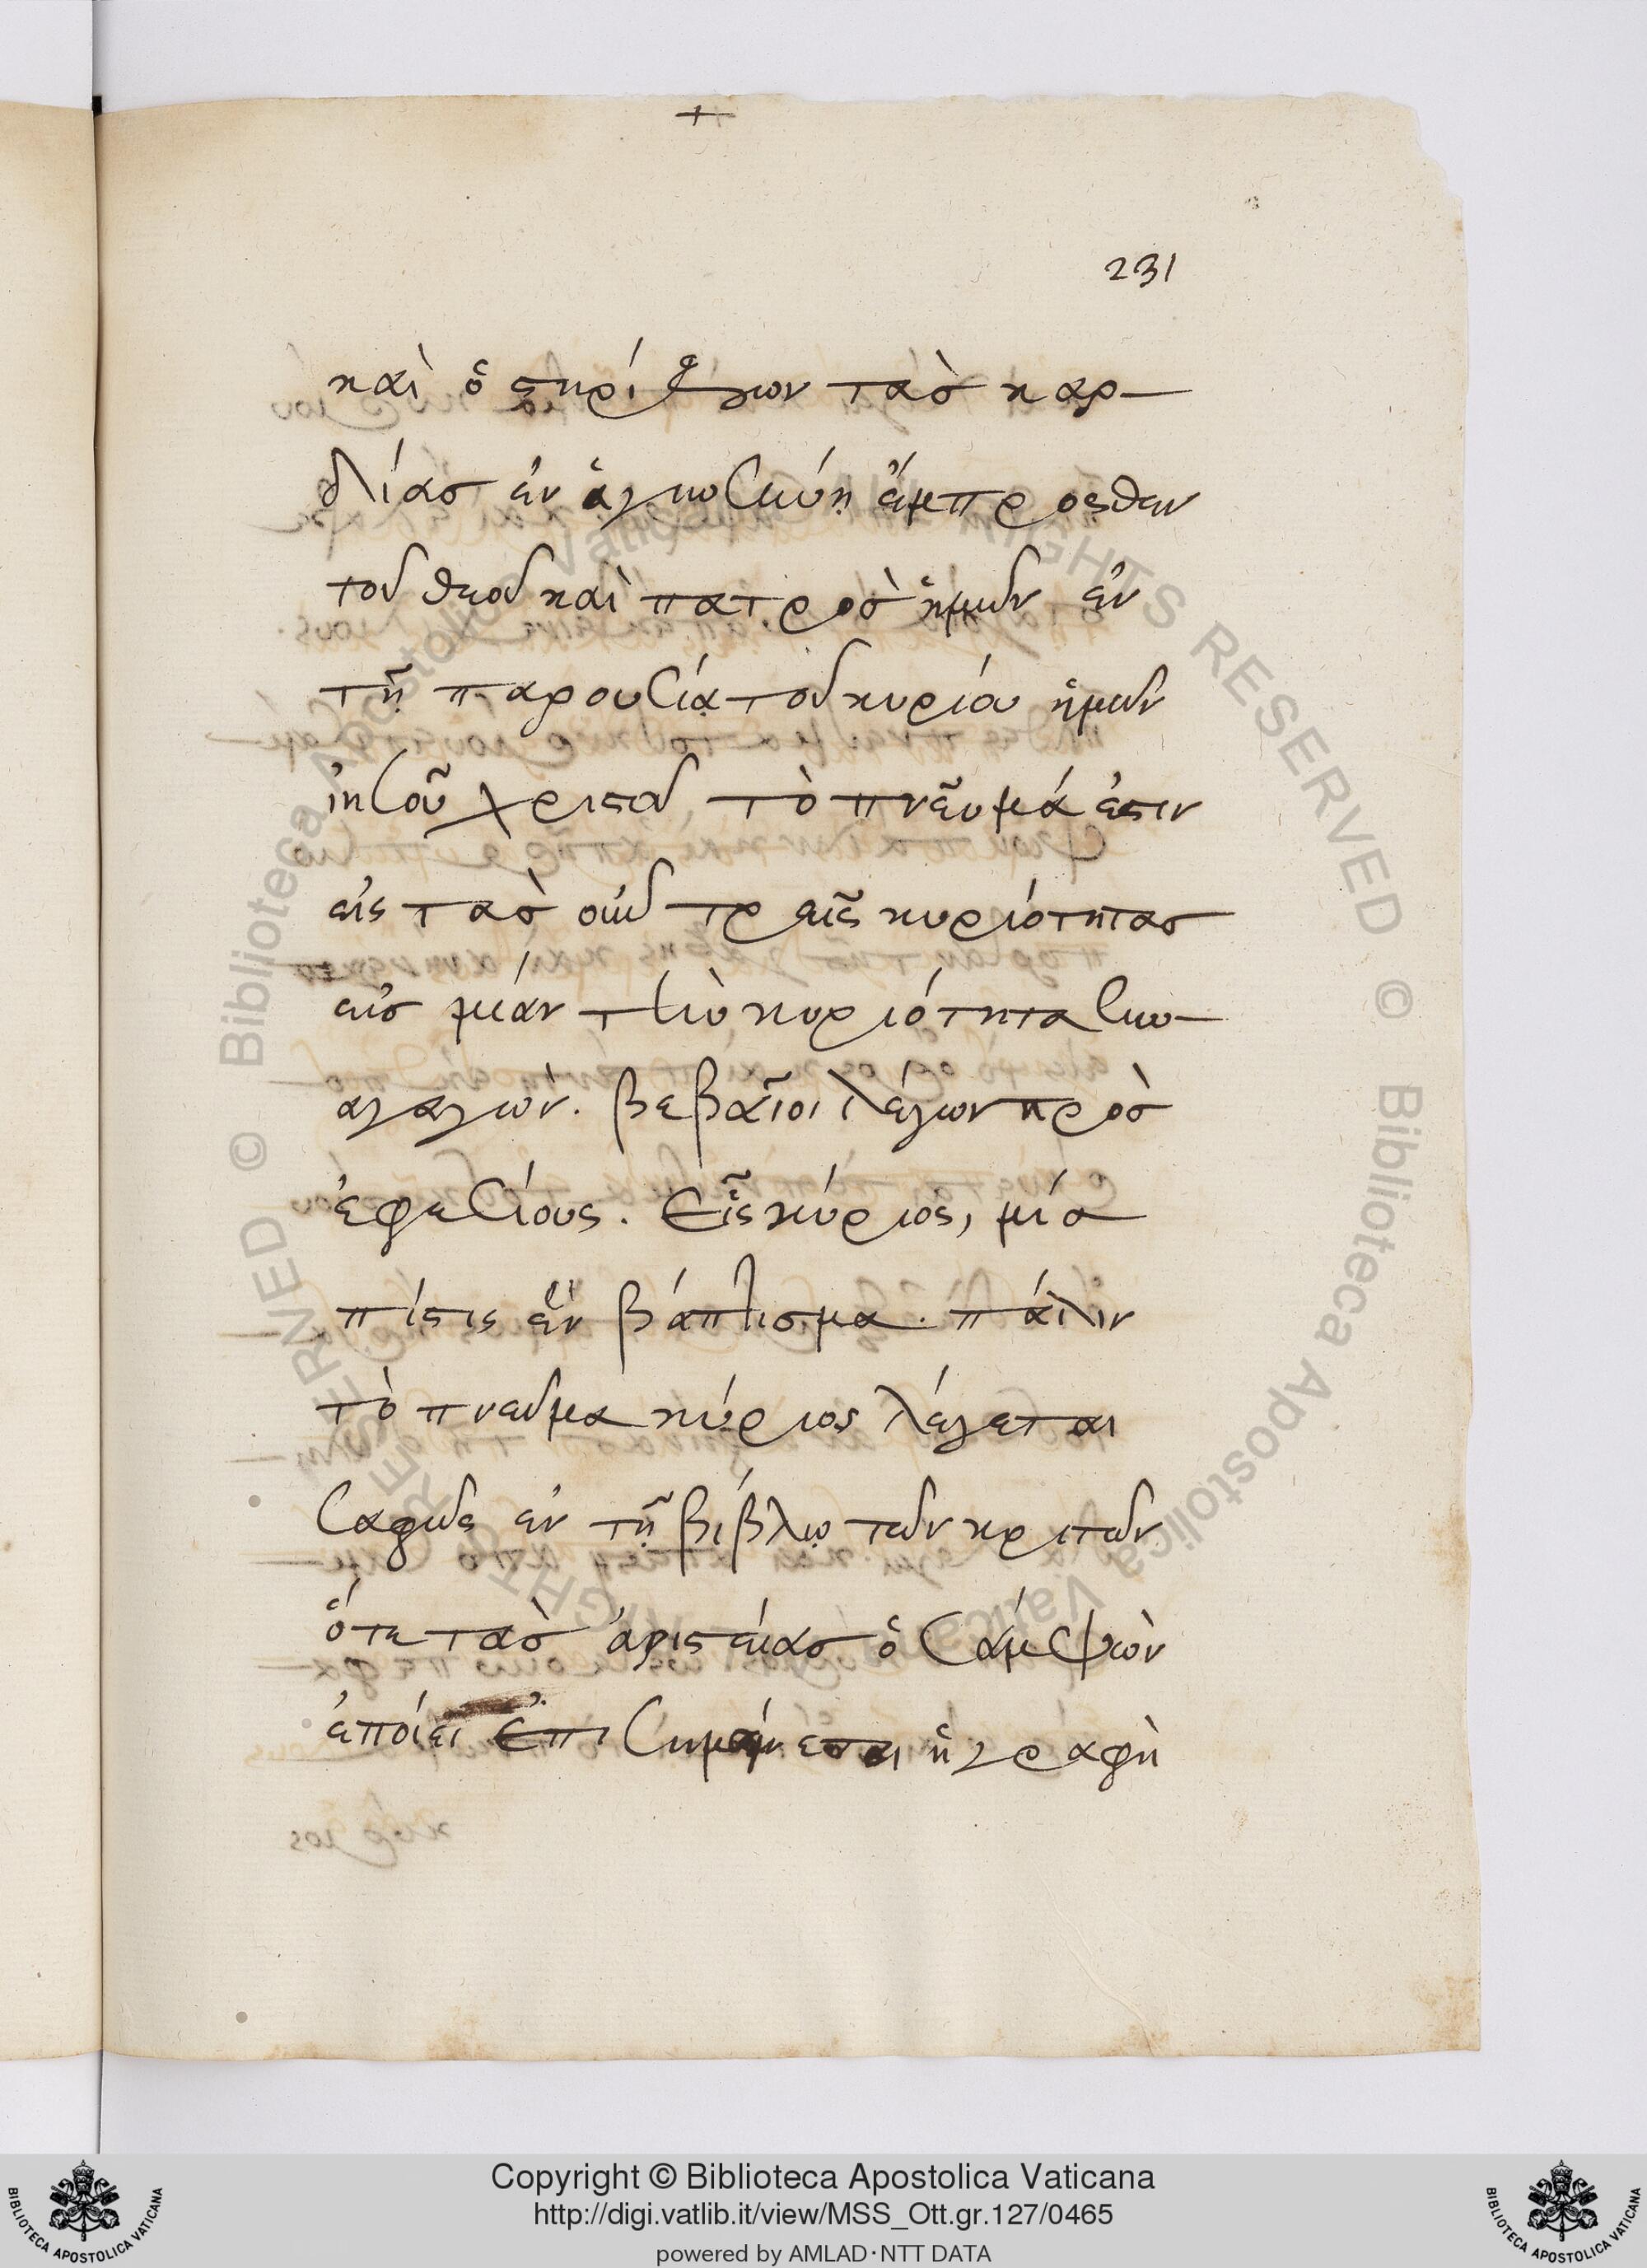 231
καὶ ὁ στηρίζων τὰσ καρ-
δίασ ἐν ἁγιωσύνῃ ἔμπροσθεν
τοῦ θεοῦ καὶ πατρὸσ ἡμῶν ἐν
τῇ παρουσίᾳ τοῦ κυρίου ἡμῶν
ἰησοῦ χριστοῦ, τὸ πνεῦμά ἐστιν
εἰς τὰσ οὖν τρεῖς κυριότητασ
εἰσ μίαν τὴν κυριότητα συν-
αγαγὼν. βεβαῖοι λέγων πρὸσ
ἐφεσίους. Εἷς κύριος, μία
πίστις ἓν βάπτισμα. πάλιν
τὸ πνεῦμα κύριος λέγεται
σαφῶς ἐν τῇ βίβλῳ τῶν κριτῶν
ὅτε τὰσ ἀριστείασ ὁ σάμψὼν
ἐποίει ἐπισημαίνεται ἡ γραφὴ
Copyright © Biblioteca Apostolica Vaticana
http://digi.vatlib.it/view/MSS_Ott.gr.127/0465
powered by AMLAD·NTT DATA
BIBLIOTECA APOSTOLICA VATICANA
BIBLIOTECA APOSTOLICA VATICANA